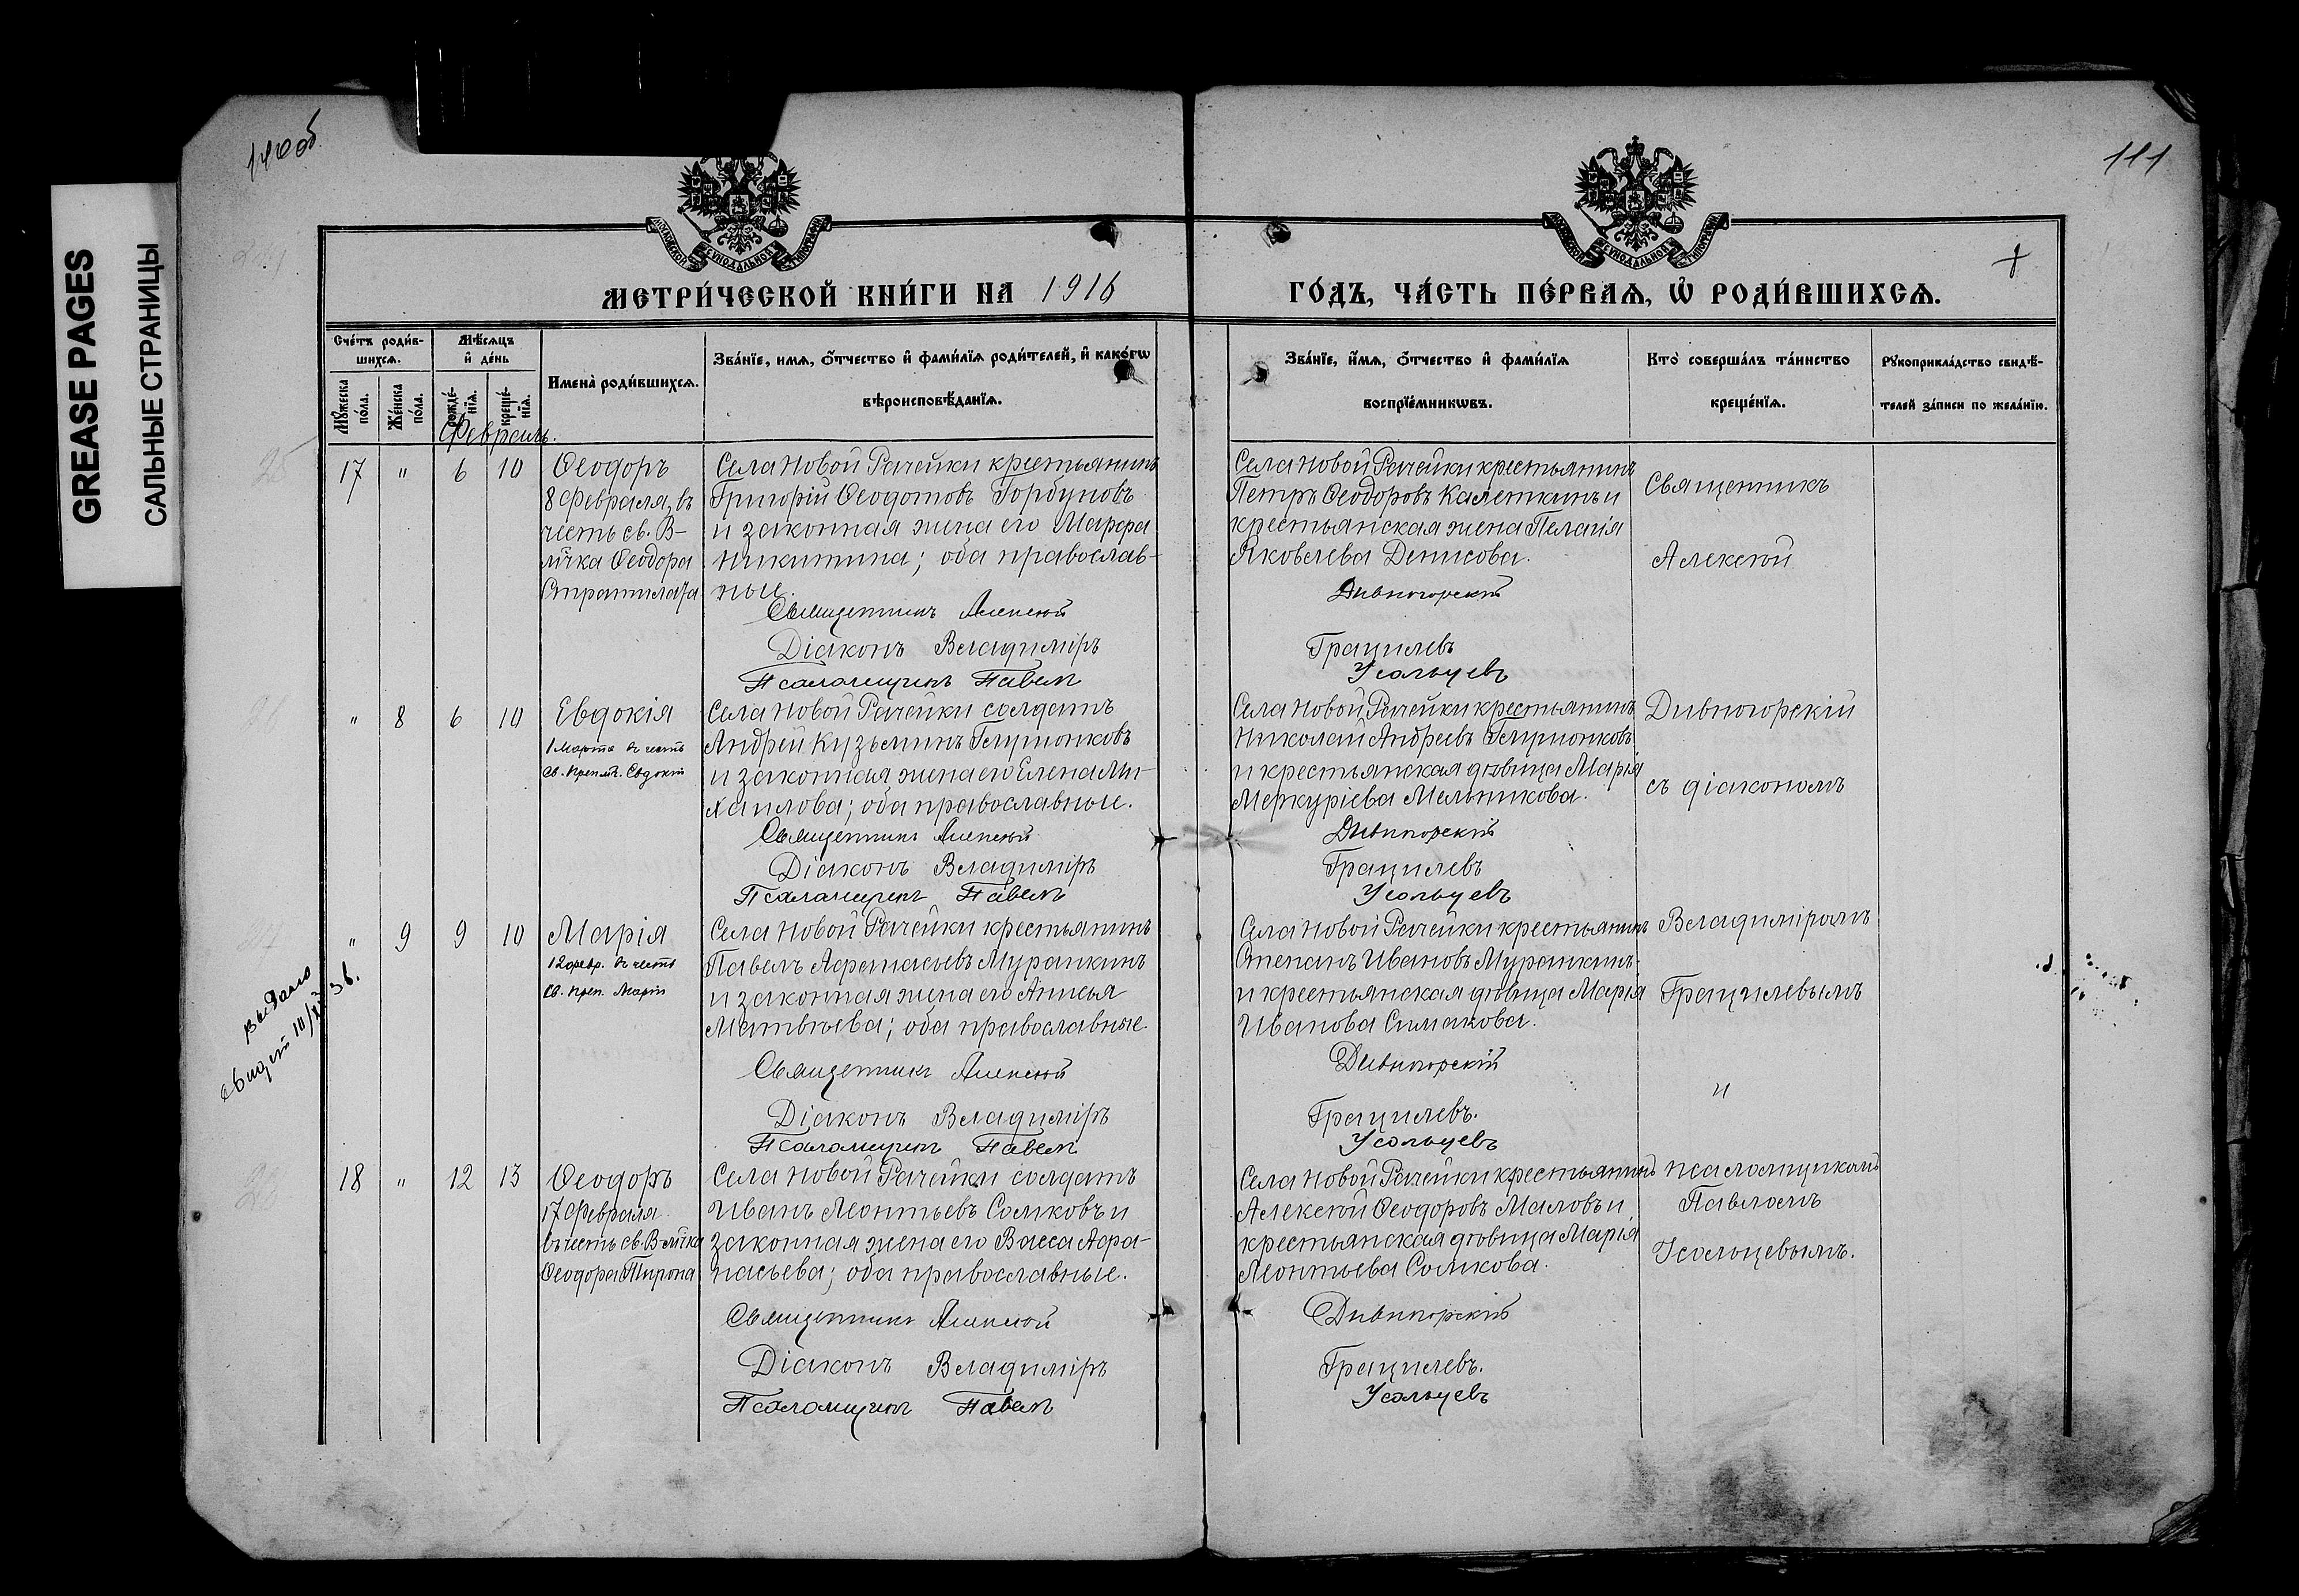 GREASE PAGES
САЛЬНЫЕ СТРАНИЦЫ
111
МЕТРИ́ЧЕСКОЙ КНИ́ГИ НА 1916
ГО́ДЪ, ЧА́СТЬ ПЕ́РВАѦ, Ѡ РОДИ́ВШИХСѦ.
Счётъ роди́в-
шихсѧ.
Мѣ́сѧцъ
и де́нь
Мꙋ́жеска по́ла.
Же́нска по́ла.
рожде́-нїѧ.
креще́-нїѧ.
Имена̀ роди́вшихсѧ.
Зва́нїе, имѧ, ѻ́тчество и фами́лїѧ роди́телей, и како́гѡ
вѣроисповѣ́данїѧ.
Зва́нїе, и́мѧ, ѻ́тчество и фами́лїѧ
воспрїе́мникѡвъ.
Кто̀ соверша́лъ та́инство
креще́нїѧ.
Рꙋкоприкла́дство свидѣ́-
телей за́писи по жела́нїю.
Февраль.
17 " 6 10 Ѳеодоръ
8 февраля, въ
честь св. В-
м̃чка Ѳеодора
Стратилата
Села Новой Рачейки крестьянинъ
Григорій Ѳеодотовъ Горбуновъ
и законная жена его Марфа
Никитина; оба православ-
ные.
Священникъ Алексѣй
Діаконъ Владиміръ
Псаломщикъ Павелъ
Села Новой Рачейки крестьянинъ
Петръ Ѳеодоровъ Калеткинъ и
крестьянская жена Пелагія
Яковлева Денисова.
Дивногорскій
Грацилевъ
Усольцевъ
Священникъ
Алексѣй
" 8 6 10 Евдокія
1 Марта въ честь
св. Препмч. Евдокіи
Села Новой Рачейки солдатъ
Андрей Кузьминъ Глушонковъ
и законная жена его Елена Ми-
хаилова; оба православные.
Священникъ Алексѣй
Діаконъ Владиміръ
Псаломщикъ Павелъ
Села Новой Рачейки крестьянинъ
Николай Андреевъ Глушонковъ
и крестьянская дѣвица Марія
Меркуріева Мельникова.
Дивногорскій
Грацилевъ
Усольцевъ
Дивногорскій
съ діакономъ
" 9 9 10 Марія
12 февр. въ честь
св. преп. Маріи
Села Новой Рачейки крестьянинъ
Павелъ Аѳанасьевъ Муранкинъ
и законная жена его Анисья
Матвѣева; оба православные.
Священникъ Алексѣй
Діаконъ Владиміръ
Псаломщикъ Павелъ
Села Новой Рачейки крестьянинъ
Степанъ Ивановъ Муранкинъ
и крестьянская дѣвица Марія
Иванова Симакова.
Дивногорскій
Грацилевъ.
Усольцевъ
Владиміромъ
Грацилевымъ
и
выдано
18 " 12 13 Ѳеодоръ
17 Февраля
въ честь св. В-м̃чка
Ѳеодора Тирона
Села Новой Рачейки солдатъ
Иванъ Леонтьевъ Сомковъ и
законная жена его Васса Аѳа-
насьева; оба православные.
Священникъ Алексѣй
Діаконъ Владиміръ
Псаломщикъ Павелъ
Села Новой Рачейки крестьянинъ
Алексѣй Ѳеодоровъ Маловъ и
крестьянская дѣвица Марія
Леонтьева Сомкова.
Дивногорскій
Грацилевъ.
Усольцевъ
псаломщикомъ
Павломъ
Усольцевымъ.